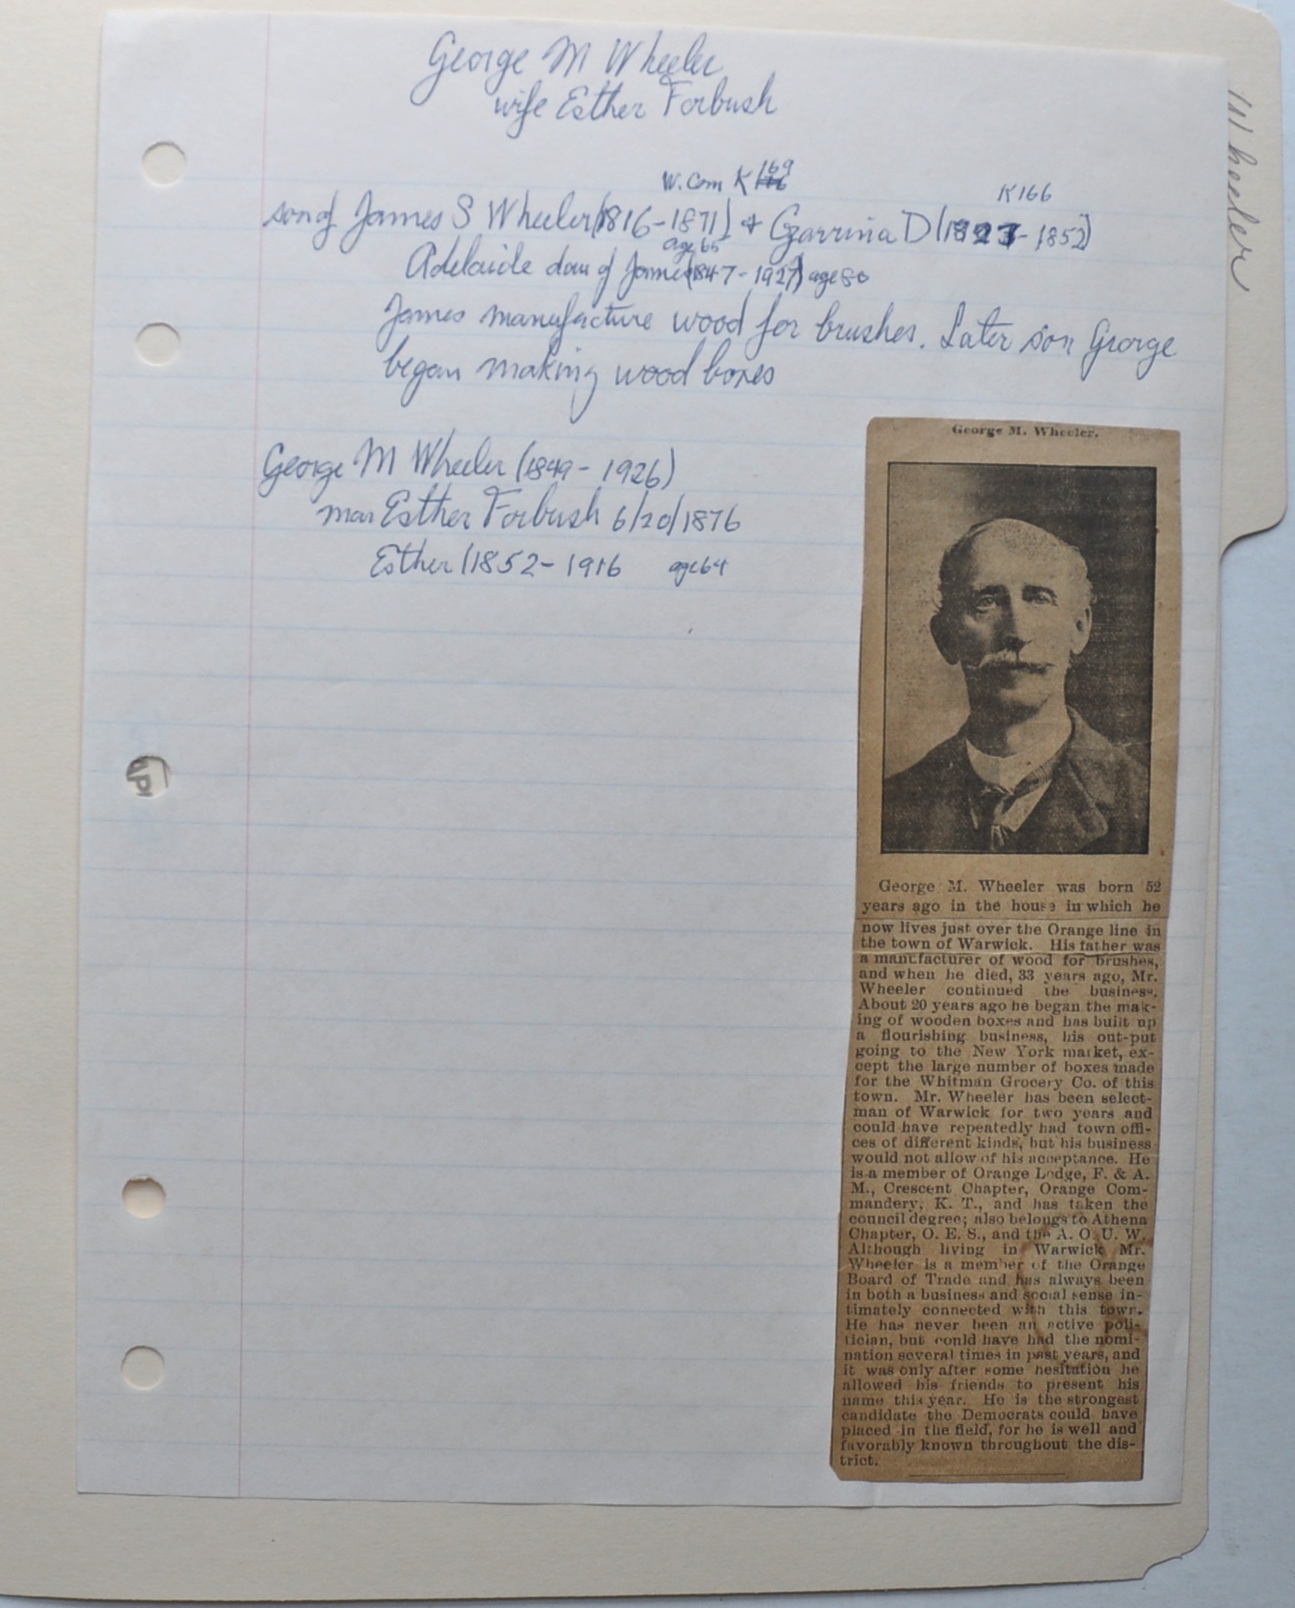 George M Wheeler
wife Esther Forbush
W. Cem K 169
K166
son of James S Wheeler (1816-1871) + Czarrina D (1827-1852)
age 65
Adelaide dau of James (1847-1927) age 80
James manufacture wood for brushes. Later son George
began making wood boxes
George M Wheeler (1849-1926)
mar Esther Forbush 6/20/1876
Esther (1852-1916 age 64
Wheeler
George M. Wheeler.
George M. Wheeler was born 52
years ago in the house in which he
now lives just over the Orange line in
the town of Warwick. His father was
a manufacturer of wood for brushes,
and when he died, 33 years ago, Mr.
Wheeler continued the business.
About 20 years ago he began the mak-
ing of wooden boxes and has built up
a flourishing business, his out-put
going to the New York market, ex-
cept the large number of boxes made
for the Whitman Grocery Co. of this
town. Mr. Wheeler has been select-
man of Warwick for two years and
could have repeatedly had town offi-
ces of different kinds, but his business
would not allow of his acceptance. He
is a member of Orange Lodge, F. & A.
M., Crescent Chapter, Orange Com-
mandery, K. T., and has taken the
council degree; also belongs to Athena
Chapter, O. E. S., and the A. O. U. W.
Although living in Warwick Mr.
Wheeler is a member of the Orange
Board of Trade and has always been
in both a business and social sense in-
timately connected with this town.
He has never been an active poli-
tician, but could have had the nomi-
nation several times in past years, and
it was only after some hesitation he
allowed his friends to present his
name this year. He is the strongest
candidate the Democrats could have
placed in the field, for he is well and
favorably known throughout the dis-
trict.